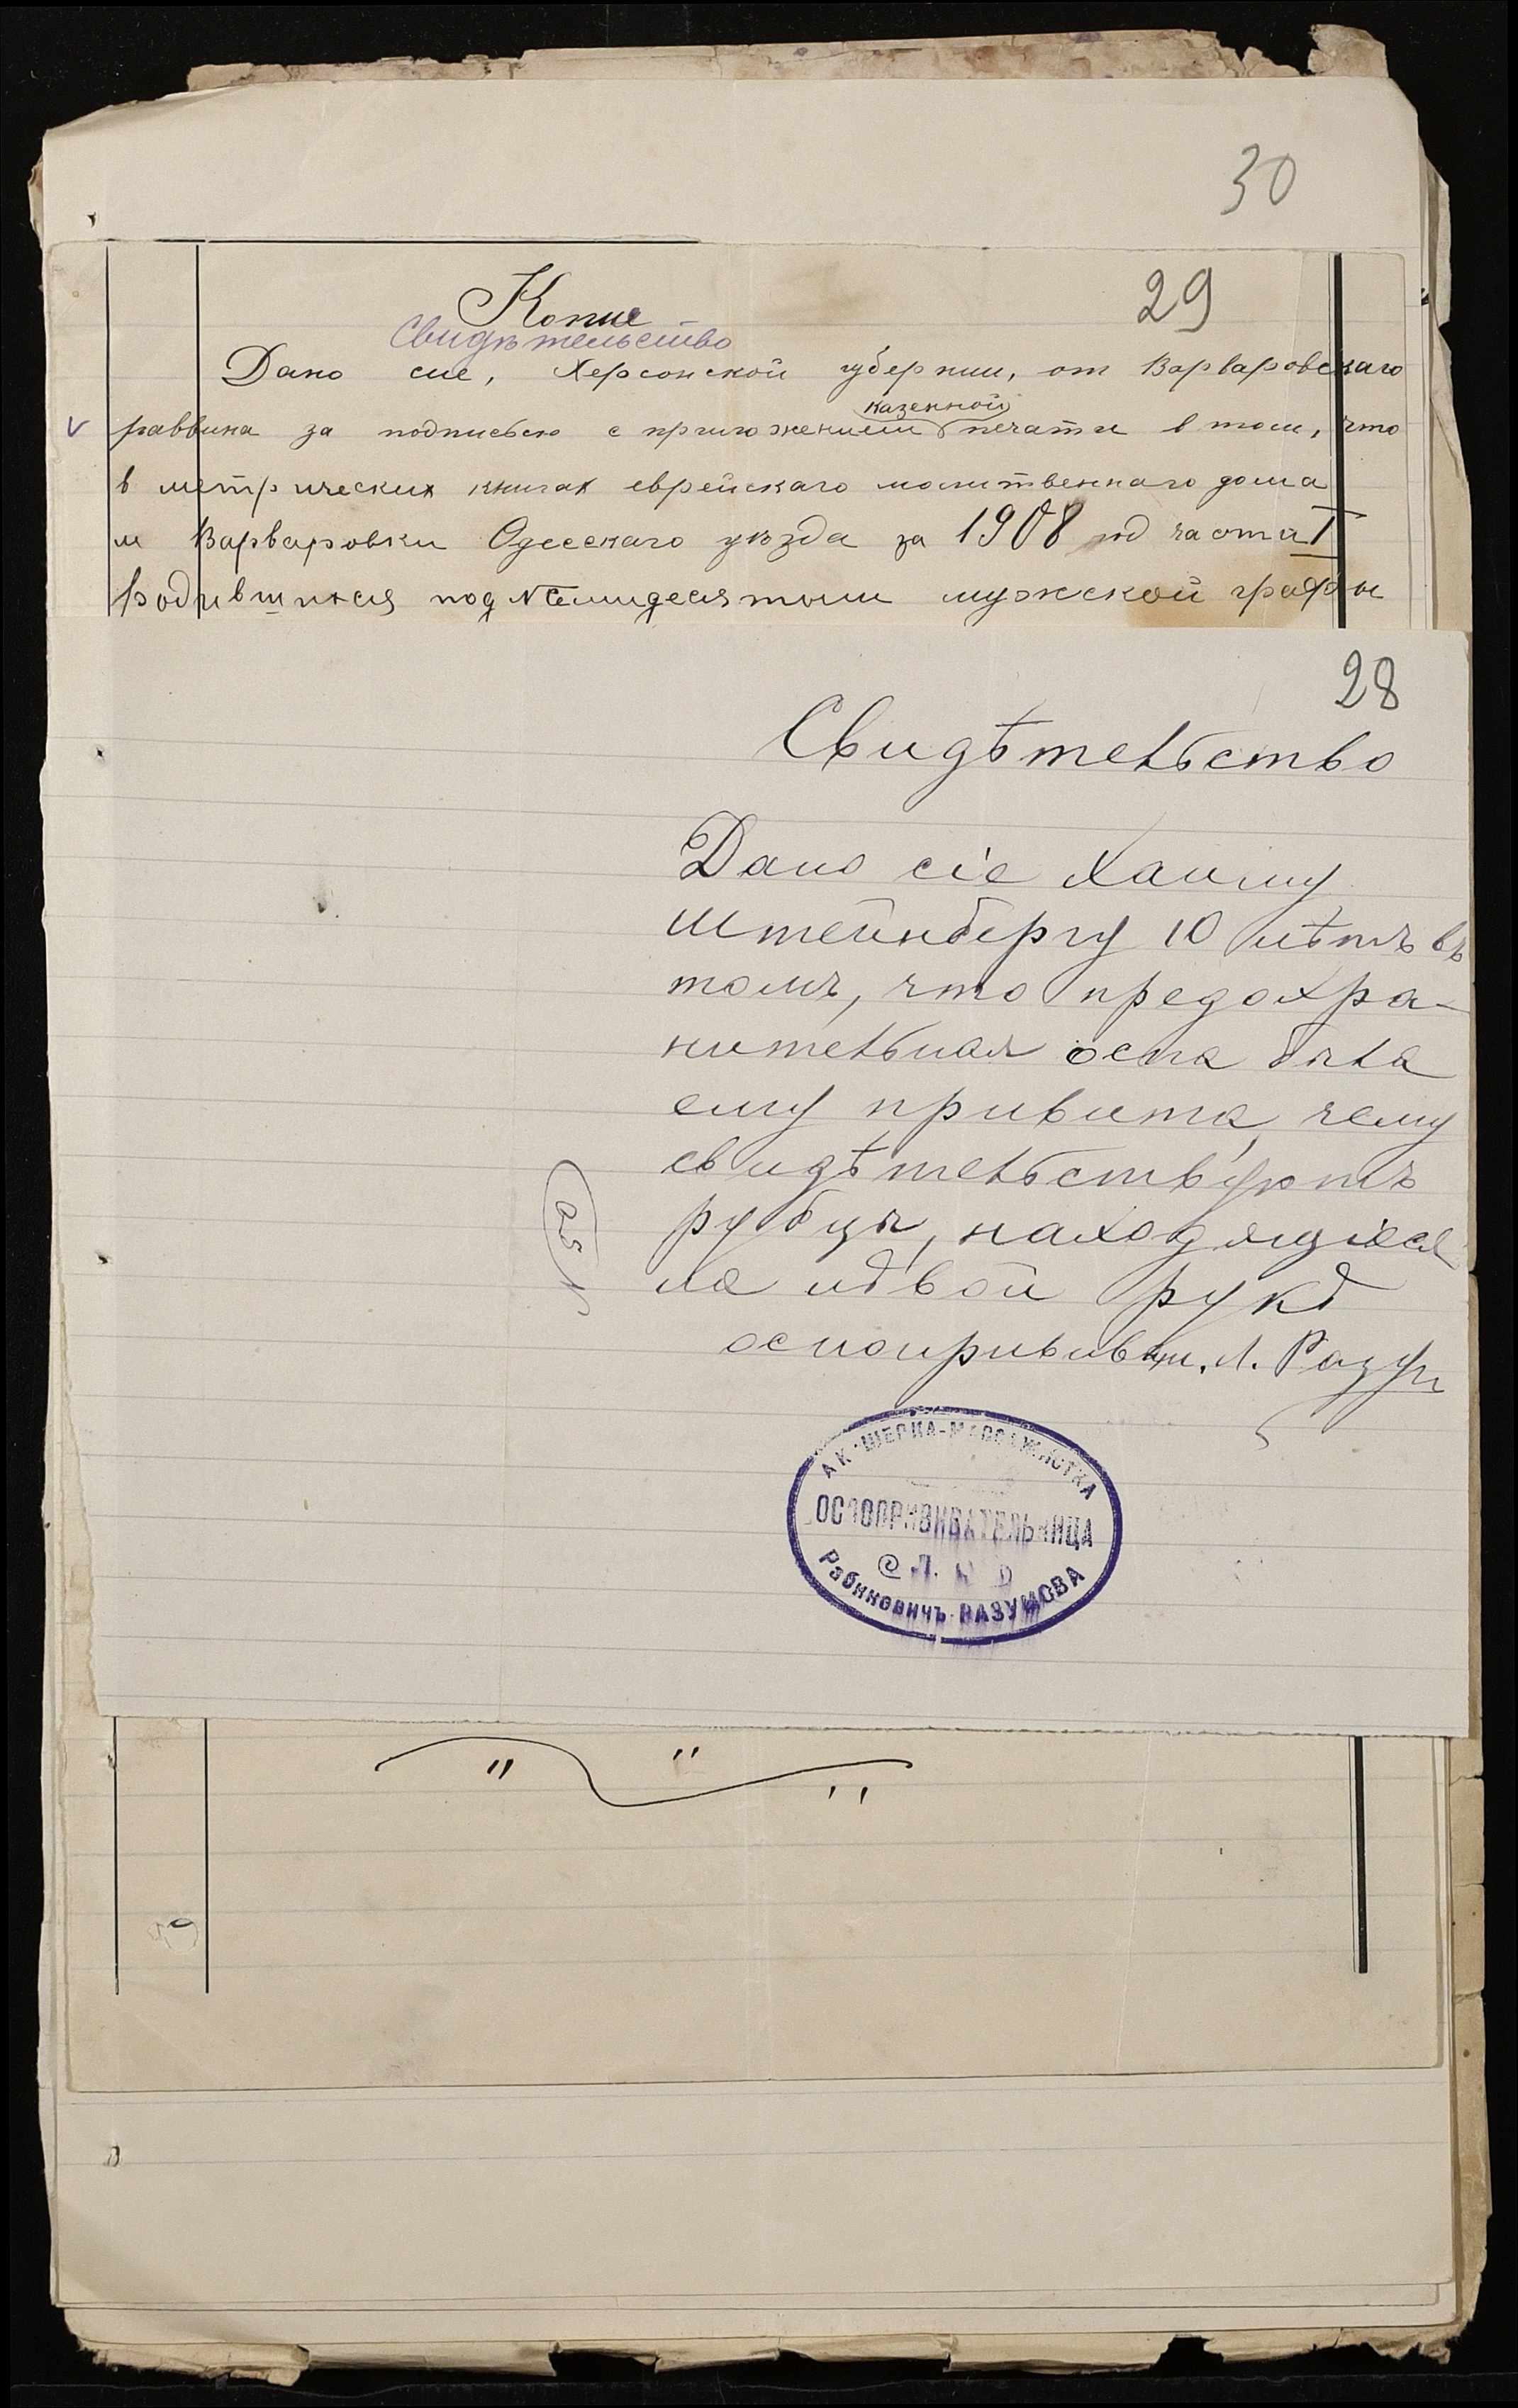 30
29
Копие
Свидѣтельство
Дано сие, Херсонской губернии, от Варваровскаго
казенной
раввина за подписью с приложением печати в том, что
в метрических книгах еврейскаго молитвеннаго дома
м Варваровки Одесскаго уѣзда за 1908 год часть I
Родившихся под № Семидесятым мужской графы
28
Свидѣтельство
Дано сіе Хаиму
Штейнбергу 10 лѣтъ въ
томъ, что предохра-
нительная оспа была
ему привита, чему
свидѣтельствуютъ
рубцы, находящіеся
на лѣвой рукѣ
оспопрививат. Л. Разум
АКУШЕРКА-МАССАЖИСТКА
ОСПОПРИВИВАТЕЛЬНИЦА
Рабиновичъ-РАЗУМОВА